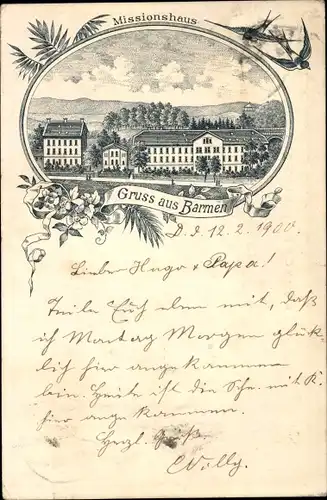 Missionshaus
Gruss aus Barmen
D. d. 12.2.1900.
Lieber Hugo & Papa!
Teile Euch eben mit, daß
ich Montag Morgen glück-
lich hier angekommen
bin. Heute ist die mit
hier angekommen.
Herzl. Gruß.
Willy.